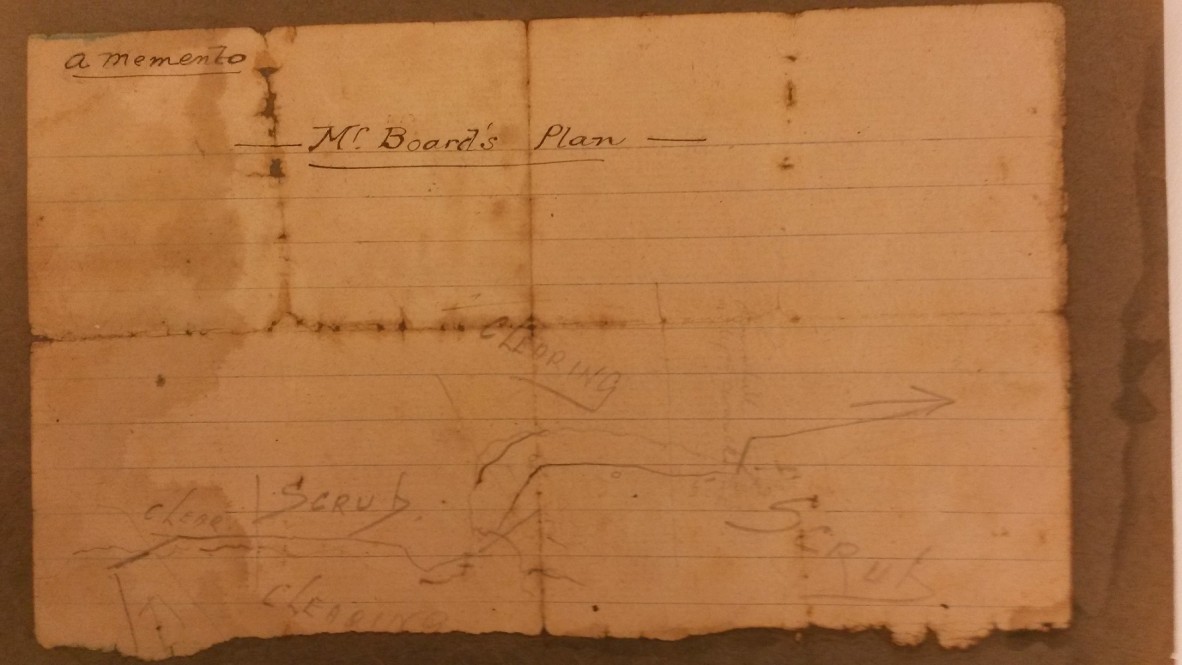 a memento
Mr. Board's Plan
CLEARING
SCRUB
CLEAR
SCRUB
CLEARING